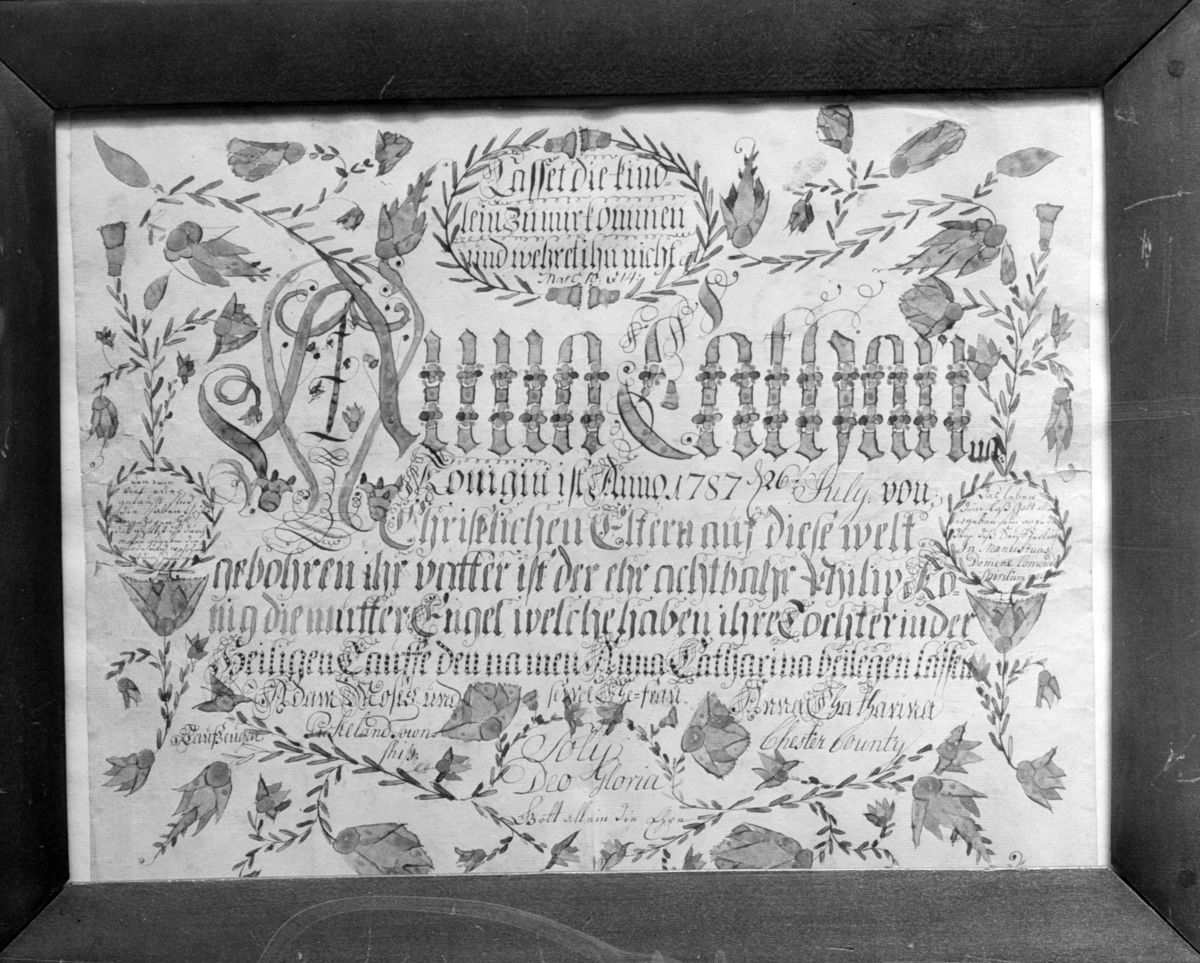 Lasset die kind-
lein zu mir kommen
und wehret ihn nicht
Marc. 10. v 14.
Anna Cathari
na
Königin ist Anno. 1787 d 26. July. von
Christlichen Eltern auf diese welt
gebohren ihr vatter ist der ehr achtbahr Philip Kö-
nig die mutter Engel welche haben ihre Tochter in der
Heiligen Tauffe den namen Anna Catharina beilegen lassen
Adam Moses und seine Ehe-frau Anna Chatharina
Taufzeugen
Pickeland town
ship.
Chester County
Soly
Deo Gloria
Gott allein die Ehre
Das leben
In Manus tuas
Domine